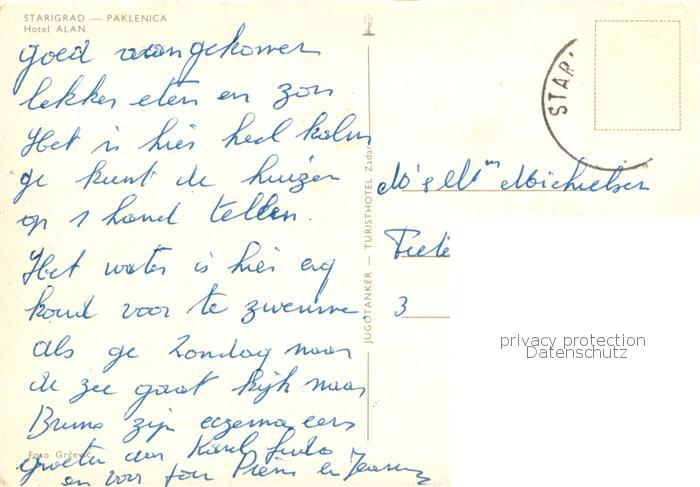 STARIGRAD — PAKLENICA
Hotel ALAN
goed aangekomen
lekker eten en zon
Het is hier heel kalm
ge kunt de huizen
op 1 hand tellen.
Het water is hier erg
koud voor te zwemme
als ge Zondag naar
de zee gaat kijk naar
Bruno zijn eczema eens
Foto Grčević
groeten aan Karel Ludo
en voor jou Pierre en
JUGOTANKER — TURISTHOTEL Zadar
STAR.
Michielsen
3
privacy protection
Datenschutz